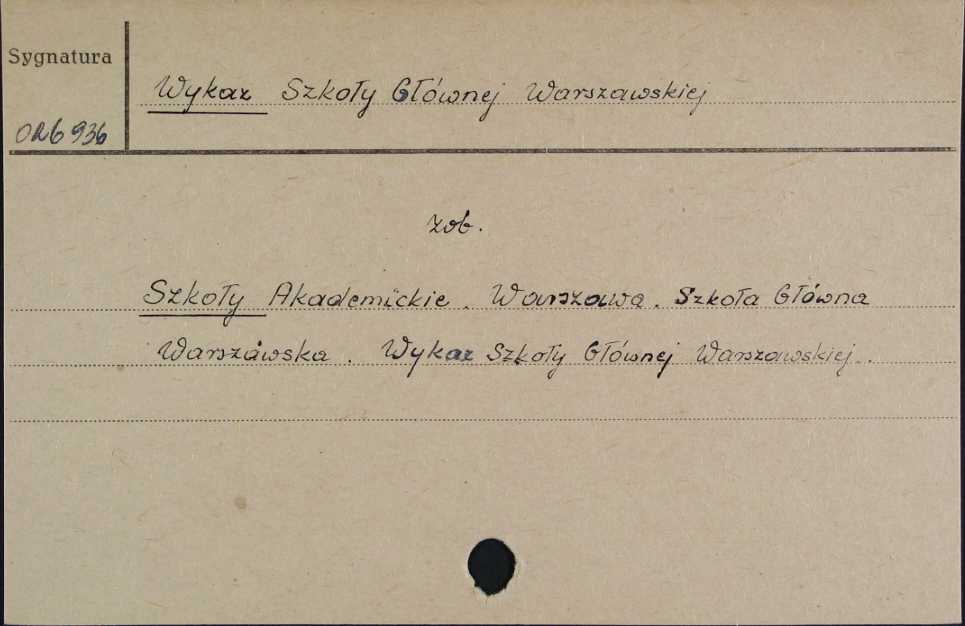 Sygnatura
Wykaz Szkoły Głównej Warszawskiej
936
zob.
Szkoły Akademickie. Warszawa. Szkoła Główna
Warszawska. Wykaz Szkoły Głównej Warszawskiej.